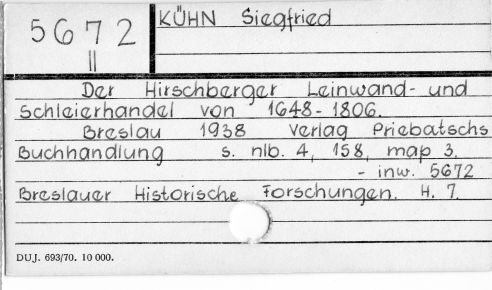 5672
II
KÜHN Siegfried
Der Hirschberger Leinwand- und
Schleierhandel von 1648-1806.
Breslau 1938 Verlag Priebatschs
Buchhandlung s. nlb. 4, 158, map 3.
- inw. 5672
Breslauer Historische Forschungen. H. 7.
DUJ. 693/70. 10 000.